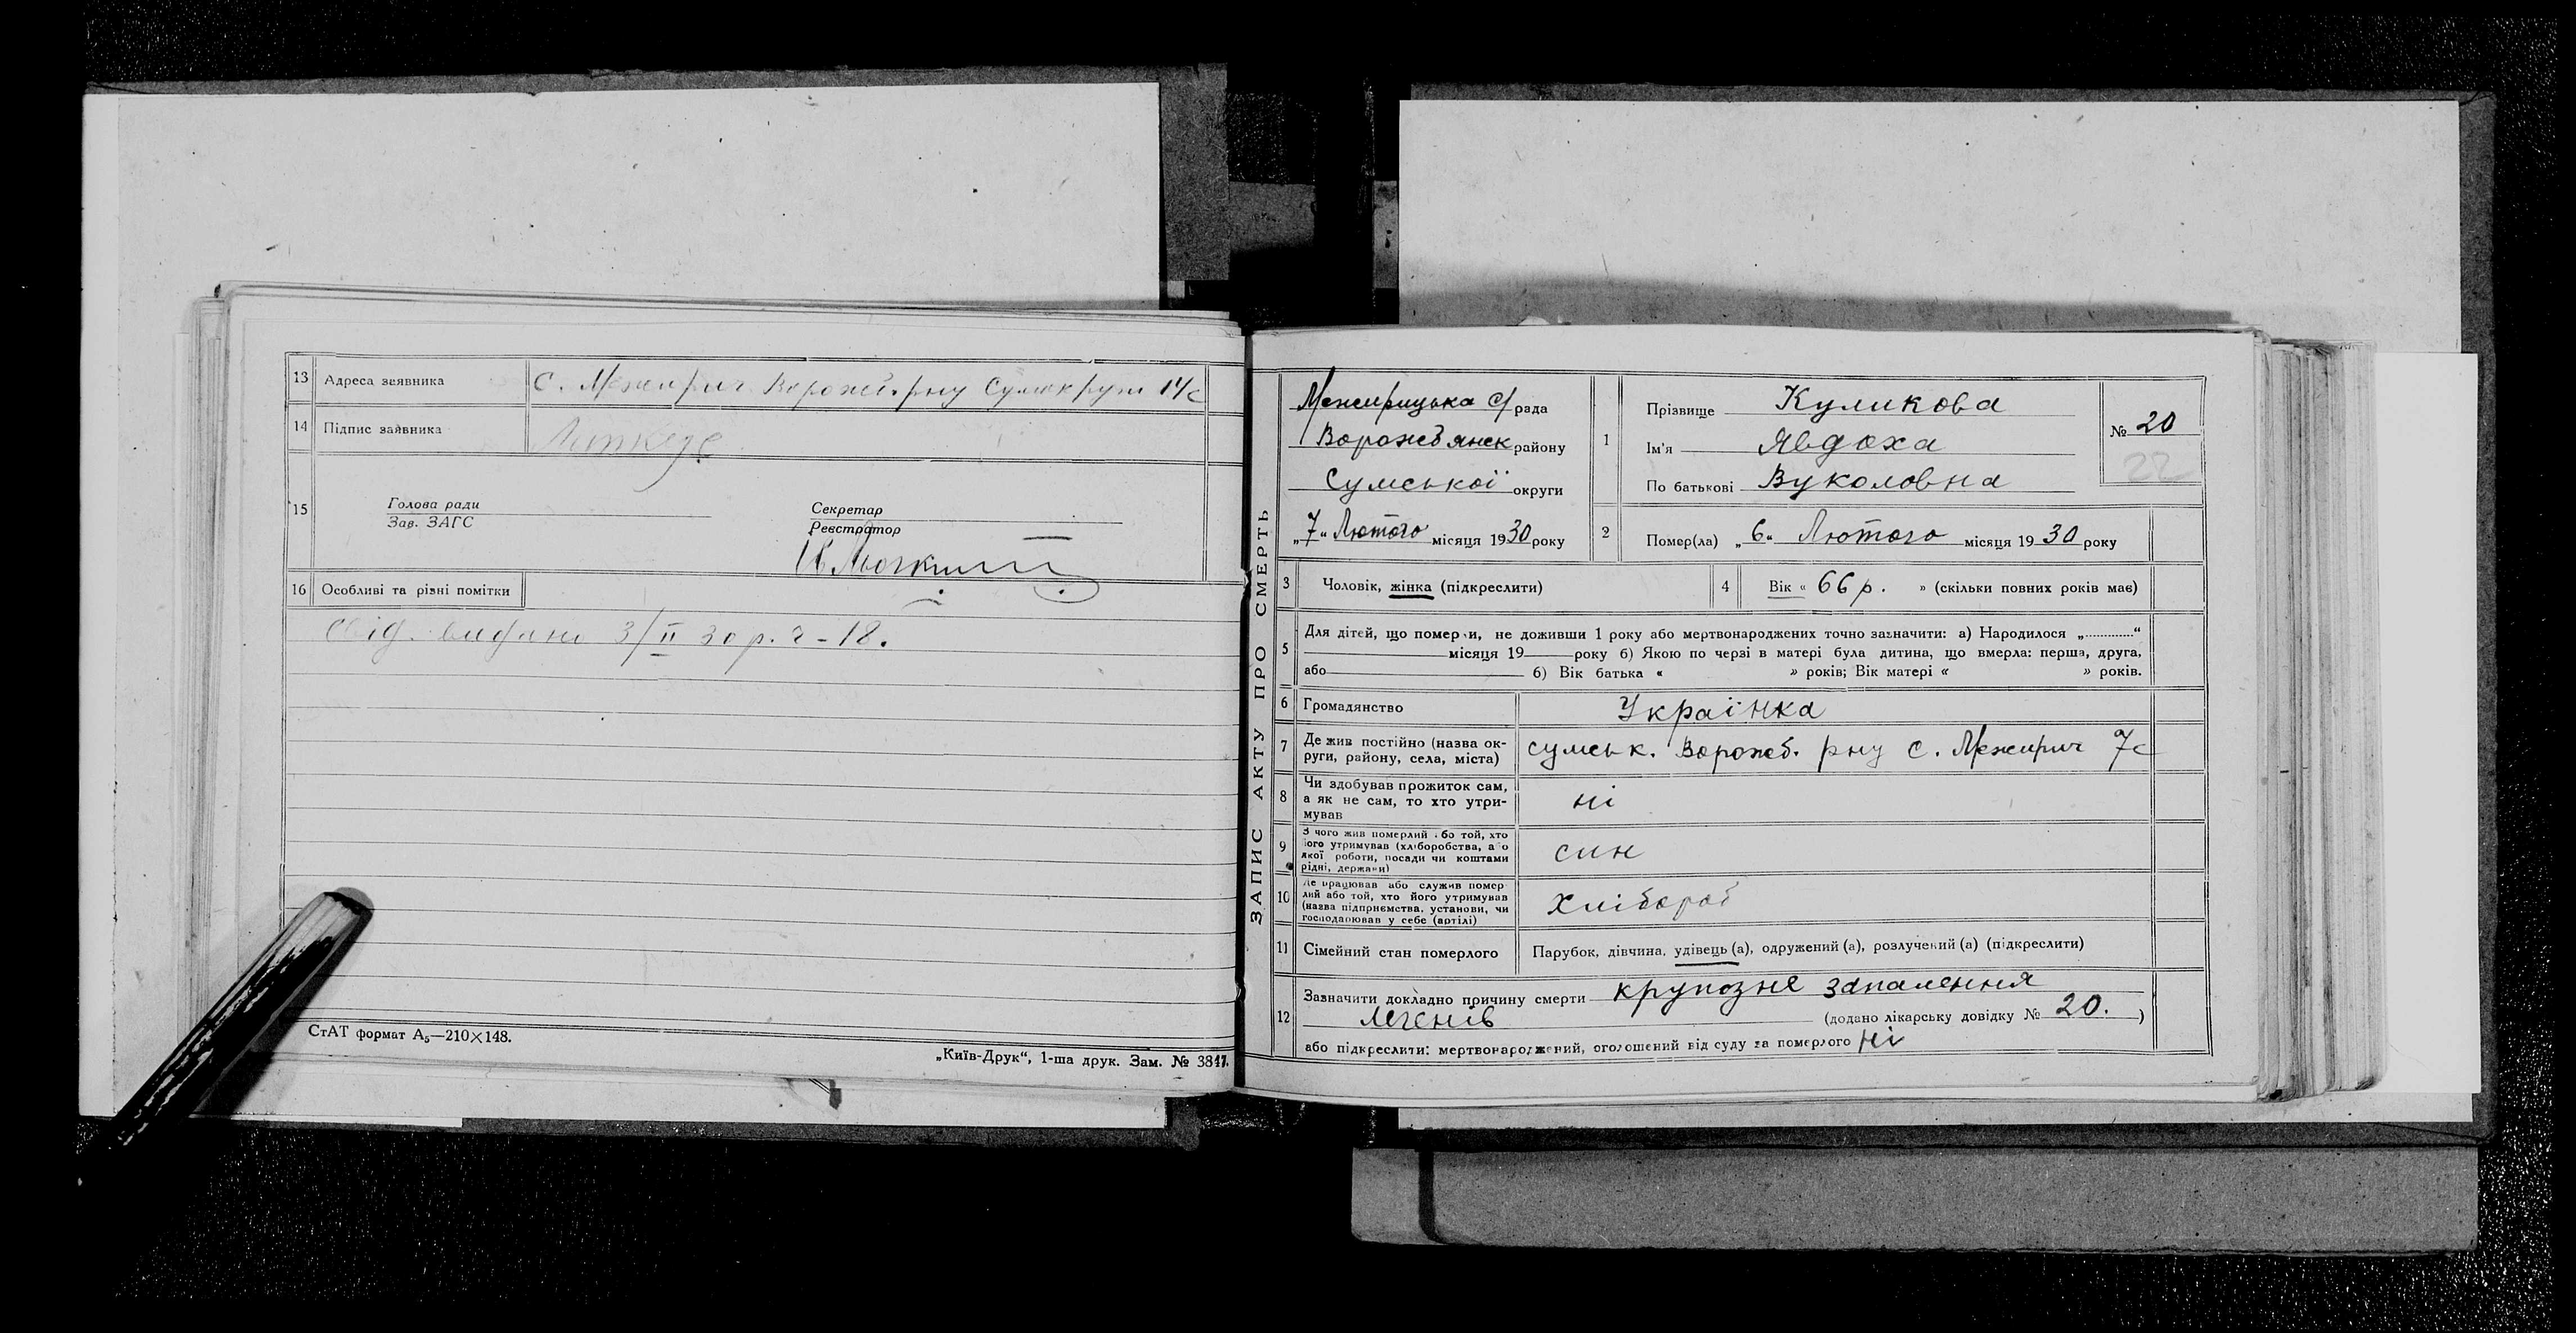 13 Адреса заявника С. Межирич Ворожб. рну Сумокруги
14 Підпис заявника
15 Голова ради
Зав. ЗАГС
Секретар
Реєстратор
16 Особливі та різні помітки
Свід. видано 3/II 30 р. г - 18.
СтАТ формат А₅—210×148.
„Київ-Друк“, 1-ша друк. Зам. № 3847.
ЗАПИС АКТУ ПРО СМЕРТЬ
Межирицька с/рада
Ворожбянск району
Сумської округи
„7“ Лютого місяця 1930 року
1
Прізвище Куликова
Ім'я Явдоха
По батькові Вуколовна
№ 20
22
2 Помер(ла) „6“ Лютого місяця 1930 року
3 Чоловік, жінка (підкреслити)
4 Вік « 66 р. » (скільки повних років має)
5 Для дітей, що померли, не доживши 1 року або мертвонароджених точно зазначити: а) Народилося „............“
місяця 19 року б) Якою по черзі в матері була дитина, що вмерла: перша, друга,
або б) Вік батька « » років; Вік матері « » років.
6 Громадянство Украінка
7 Де жив постійно (назва ок-
руги, району, села, міста) сумськ. Ворожб. рну с. Межирич 7с
8 Чи здобував прожиток сам,
а як не сам, то хто утри-
мував ні
9 З чого жив померлий або той, хто
його утримував (хліборобства, або
якої роботи, посади чи коштами
рідні, держави) син
10 Де працював або служив помер
лий або той, хто його утримував
(назва підприємства, установи, чи
господарював у себе (артілі) хлібороб
11 Сімейний стан померлого Парубок, дівчина, удівець (а), одружений (а), розлучений (а) (підкреслити)
12 Зазначити докладно причину смерти крупозне запалення
легенів (додано лікарську довідку № 20. )
або підкреслити: мертвонароджений, оголошений від суду за померлого ні